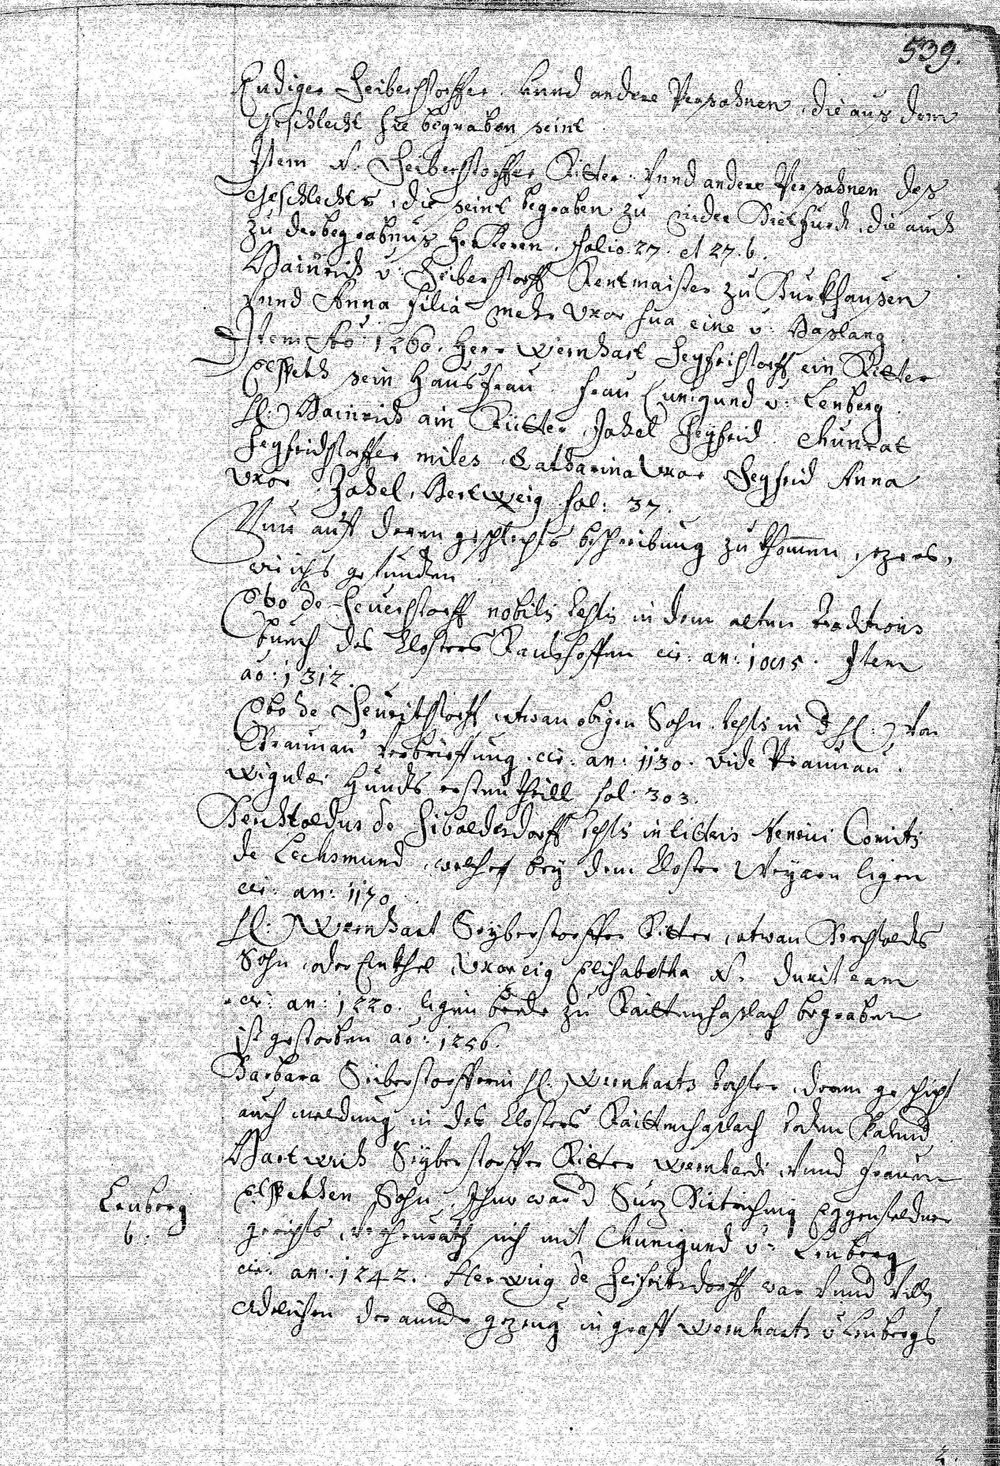 539.
Rudiger Seiberstorffer vnnd andere Persohnen, die aus dem
Geschlecht hie begraben seint.
Item N. Seiberstorffer Ritter vnnd andere Persohnen des
Geschlechts, die seint begraben zu nider Viehfurth, die auch
zu der begrabnus gehören, folio. 27. et 27. b.
Hainrich v: Seiberstorff Rentmaister zu Burkhausen
vnnd Anna filia mehr vxor sua eine v:
Item Ao: 1260. Herr Wernhart Seyfristorff ein Ritter
Elspeth sein Hausfrau. Frau Cunigund v: Lenberg.
H: Hainrich ain Ritter, Jahel Seyfrid Chunrat
Seyfridstorffer miles, Catharina vxor Seyfrid Anna
vxor Zahel, Hertweig fol: 37.
Nun auff deren geschlechts beschreibung zu khomen, 
wie ichs gefunden
Otto de Seuerstorff nobilis testis in dem alten traditions
buech des Closters Ranshoffen cir: an: 1095. Item
ao: 1312.
Otto de Seurithstorff, etwan obigen Sohn testis in d H: von
Braunau verbrieffung. cir: an: 1130. vide Braunau.
Wigulæi Hunds ersten theill fol. 303.
Berchtoldus de Sibolderdorff testis in litteris Comitis
de Lechsmund, welches bey dem Closter Weyarn ligen
cir: an: 1170
H: Wernhart Seyberstorffer Ritter, etwan Berchtolds
Sohn, oder Enkhel, vxor eius Elisabetha N. duxit eam
cir: an: 1220. ligen beede zu Raittenhaslach begraben
ist gestorben ao: 1256.
Barbara Seiberstorfferin H: Wernharts tochter, deren geschicht
auch meldung in des Closters Raittenhaslach todten Calend
Hartwich Seyberstorffer Ritter Wernhardi vnnd Frauen
Elspethen Sohn, Ihme ward Eggenfeldner
gerichts, verheurath sich mit Chunigund v: Lenberg
cir: an: 1242. Herwig de Seifritsdorff war vnnd vill
Adelichen der annder gezeug in graff Wernharts v Lenbergs
Lenberg
6.
2.